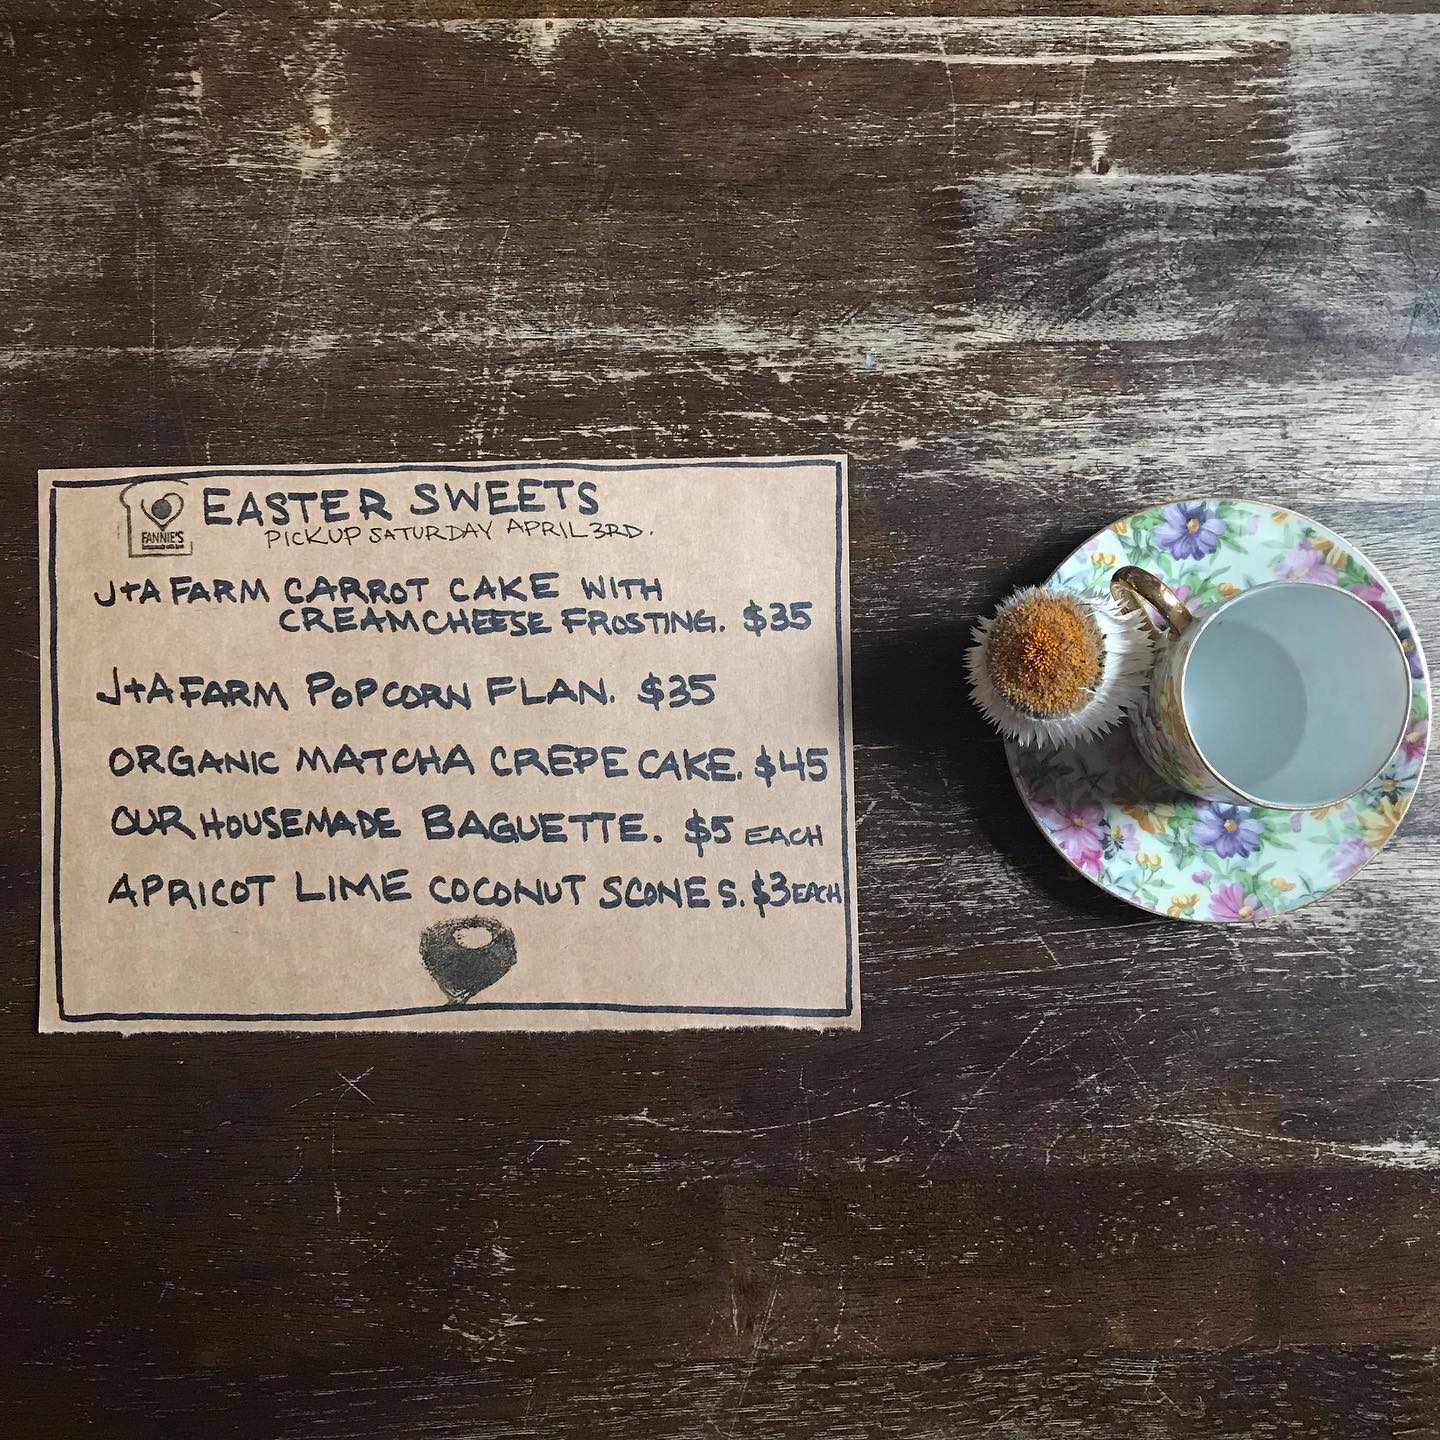 EASTER SWEETS
PICKUP SATURDAY APRIL 3RD.
FANNIE'S
J+A FARM CARROT CAKE WITH
CREAMCHEESE FROSTING. $35
J+A FARM POPCORN FLAN. $35
ORGANIC MATCHA CREPE CAKE. $45
OUR HOUSEMADE BAGUETTE. $5 EACH
APRICOT LIME COCONUT SCONES. $3 EACH